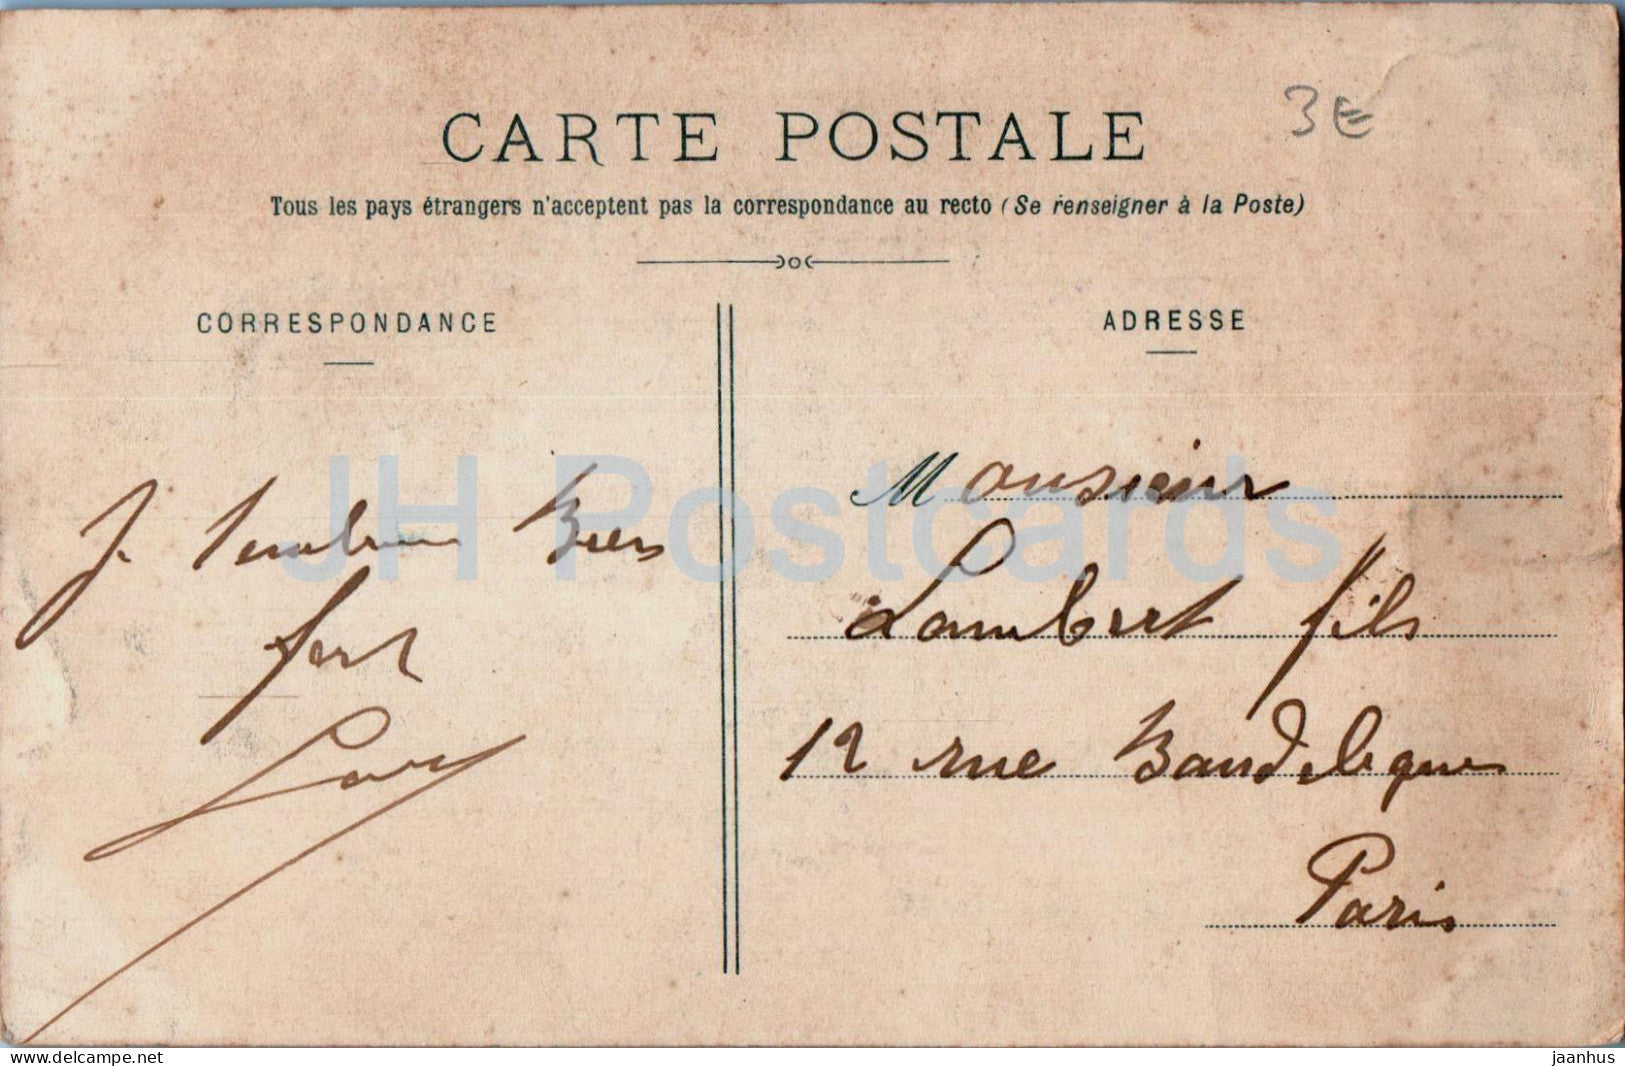 CARTE POSTALE
3€
Tous les pays étrangers n'acceptent pas la correspondance au recto (Se renseigner à la Poste)
CORRESPONDANCE
ADRESSE
JH Postcards
Monsieur
Lambert fils
12 rue Baudelique
Paris
Je t'embrasse Bien
fort
www.delcampe.net
jaanhus